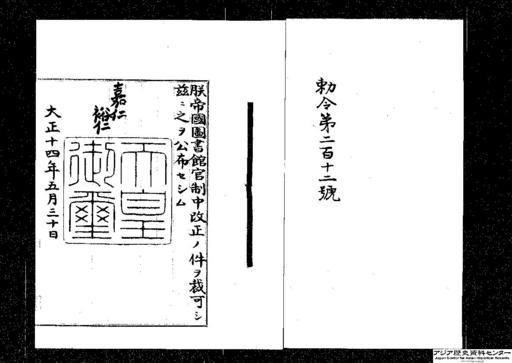 勅令第二百十二號
朕帝國圖書館官制中改正ノ件ヲ裁可シ
茲ニ之ヲ公布セシム
嘉仁
裕仁
天皇
御璽
大正十四年五月三十日
アジア歴史資料センター
Japan Center for Asian Historical Records